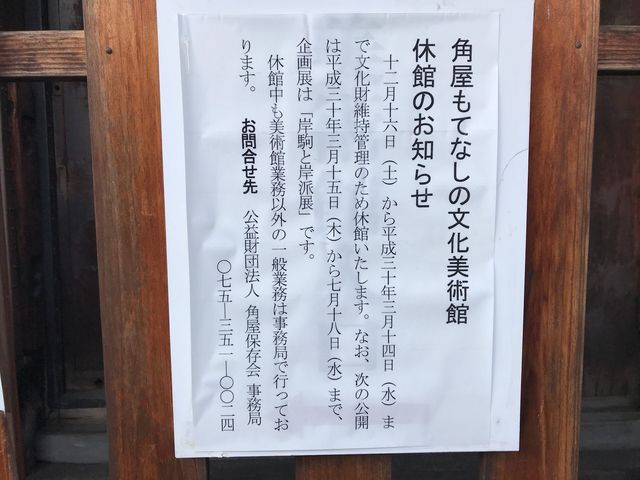 角屋もてなしの文化美術館
休館のお知らせ
十二月十六日（土）から平成三十年三月十四日（水）ま
で文化財維持管理のため休館いたします。なお、次の公開
は平成三十年三月十五日（木）から七月十八日（水）まで、
企画展は「岸駒と岸派展」です。
休館中も美術館業務以外の一般業務は事務局で行ってお
ります。
お問合せ先 公益財団法人 角屋保存会 事務局
〇七五―三五一―〇〇二四